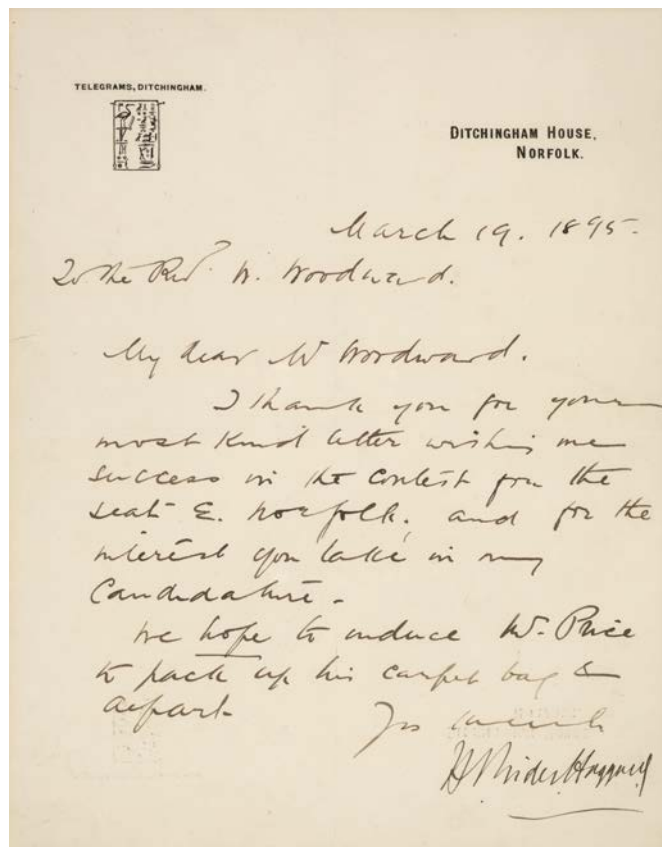 TELEGRAMS, DITCHINGHAM.
DITCHINGHAM HOUSE,
NORFOLK.
March 19. 1895.
To the Revd. W. Woodward.
My dear Mr Woodward.
I thank you for your
most kind letter wishing me
success in the contest for the
seat E. Norfolk, and for the
interest you take in my
Candidature.
We hope to induce Mr. Price
to pack up his carpet bag &
depart
Yrs
H Rider Haggard